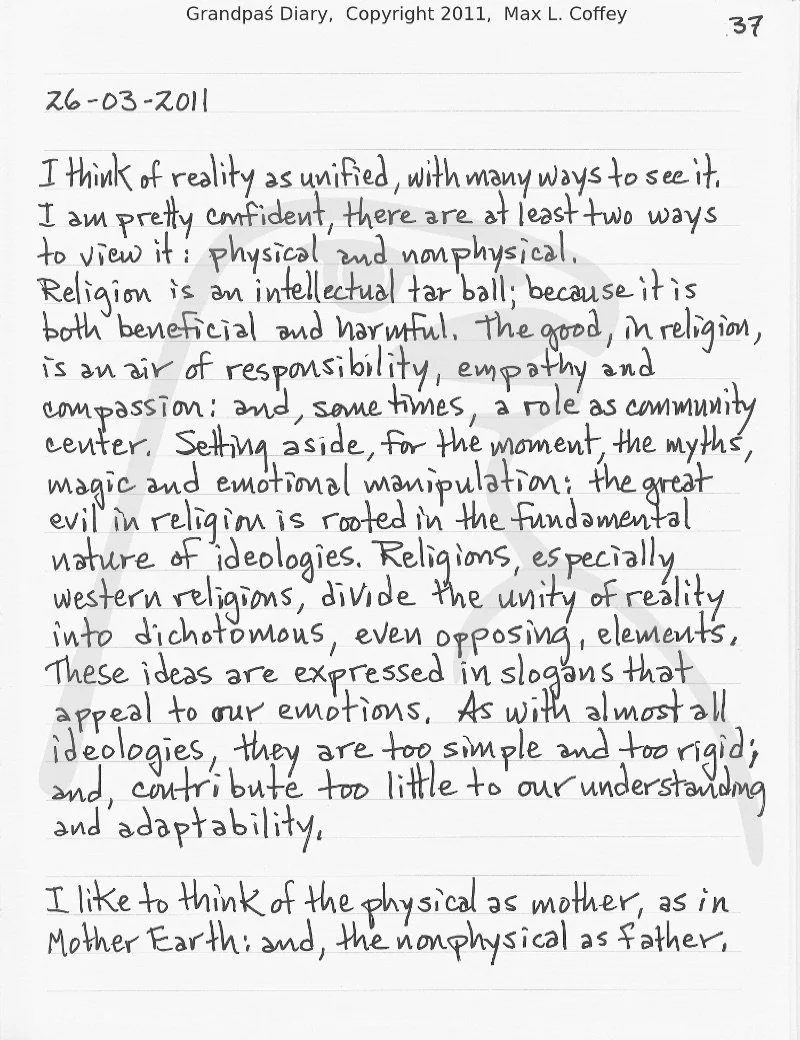 Grandpaś Diary, Copyright 2011, Max L. Coffey
37
26-03-2011
I think of reality as unified, with many ways to see it.
I am pretty confident, there are at least two ways
to view it: physical and nonphysical.
Religion is an intellectual tar ball; because it is
both beneficial and harmful. The good, in religion,
is an air of responsibility, empathy and
compassion: and, some times, a role as community
center. Setting aside, for the moment, the myths,
magic and emotional manipulation: the great
evil in religion is rooted in the fundamental
nature of ideologies. Religions, especially
western religions, divide the unity of reality
into dichotomous, even opposing, elements.
These ideas are expressed in slogans that
appeal to our emotions. As with almost all
ideologies, they are too simple and too rigid;
and, contribute too little to our understanding
and adaptability.
I like to think of the physical as mother, as in
Mother Earth: and, the nonphysical as father.